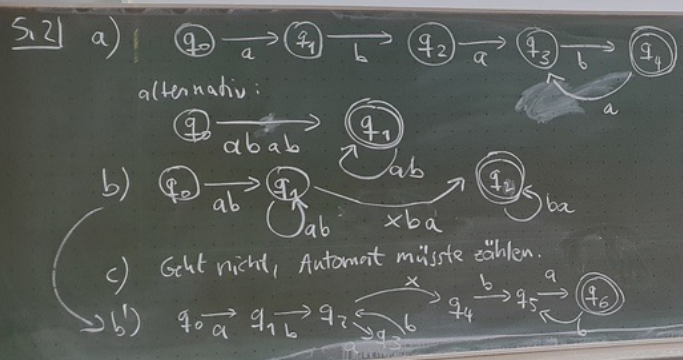 5.2 a) q0 a q1 b q2 a q3 b q4 a
alternativ:
q0 abab q1 ab
b) q0 ab q1 ab xba q2 ba
c) Geht nicht, Automat müsste zählen.
b') q0 a q1 b q2 a q3 b x q4 b q5 a q6 b